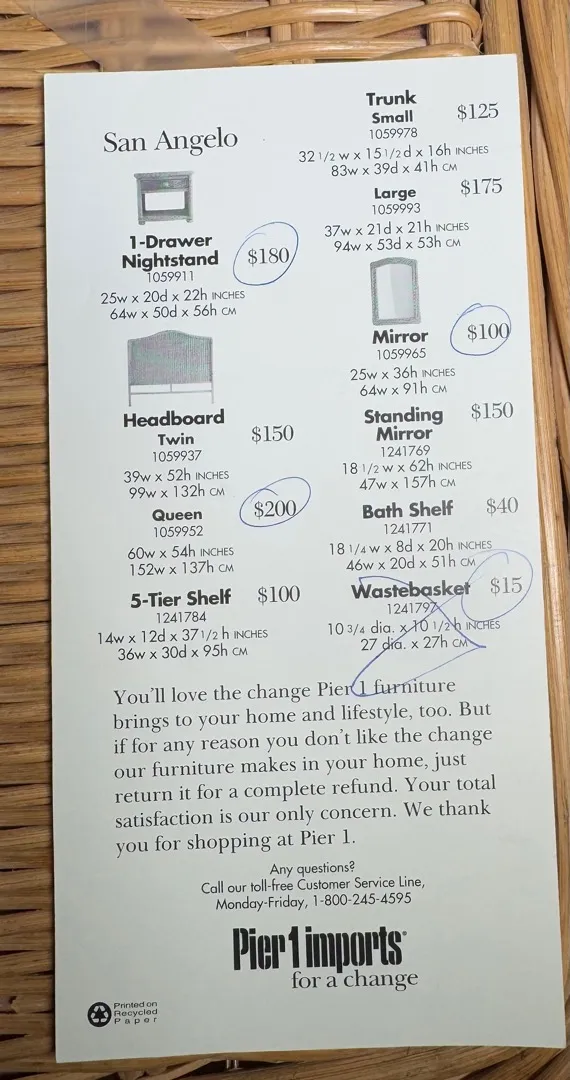 San Angelo
1-Drawer
Nightstand $180
1059911
25w x 20d x 22h INCHES
64w x 50d x 56h CM
Headboard
Twin $150
1059937
39w x 52h INCHES
99w x 132h CM
Queen $200
1059952
60w x 54h INCHES
152w x 137h CM
5-Tier Shelf $100
1241784
14w x 12d x 37 1/2 h INCHES
36w x 30d x 95h CM
Trunk
Small $125
1059978
32 1/2 w x 15 1/2 d x 16h INCHES
83w x 39d x 41h CM
Large $175
1059993
37w x 21d x 21h INCHES
94w x 53d x 53h CM
Mirror $100
1059965
25w x 36h INCHES
64w x 91h CM
Standing $150
Mirror
1241769
18 1/2 w x 62h INCHES
47w x 157h CM
Bath Shelf $40
1241771
18 1/4 w x 8d x 20h INCHES
46w x 20d x 51h CM
Wastebasket $15
1241797
10 3/4 dia. x 10 1/2 h INCHES
27 dia. x 27h CM
You'll love the change Pier 1 furniture
brings to your home and lifestyle, too. But
if for any reason you don't like the change
our furniture makes in your home, just
return it for a complete refund. Your total
satisfaction is our only concern. We thank
you for shopping at Pier 1.
Any questions?
Call our toll-free Customer Service Line,
Monday-Friday, 1-800-245-4595
Pier 1 imports®
for a change
Printed on
Recycled
Paper